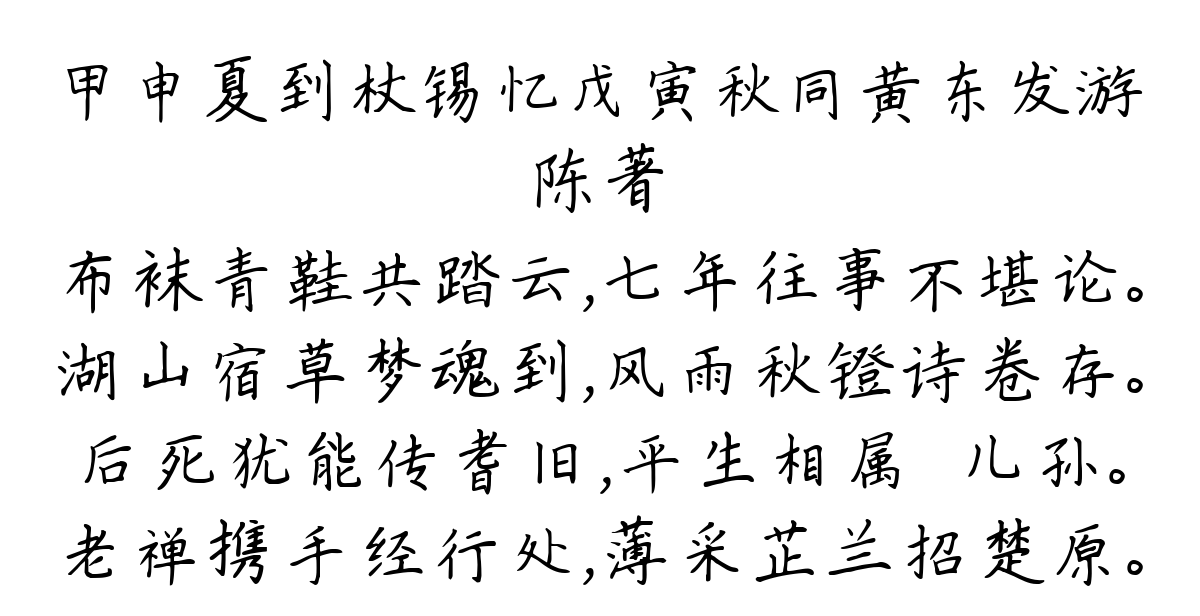 甲申夏到杖锡忆戊寅秋同黄东发游
陈著
布袜青鞋共踏云,七年往事不堪论。
湖山宿草梦魂到,风雨秋镫诗卷存。
后死犹能传耆旧,平生相属 儿孙。
老禅携手经行处,薄采芷兰招楚原。